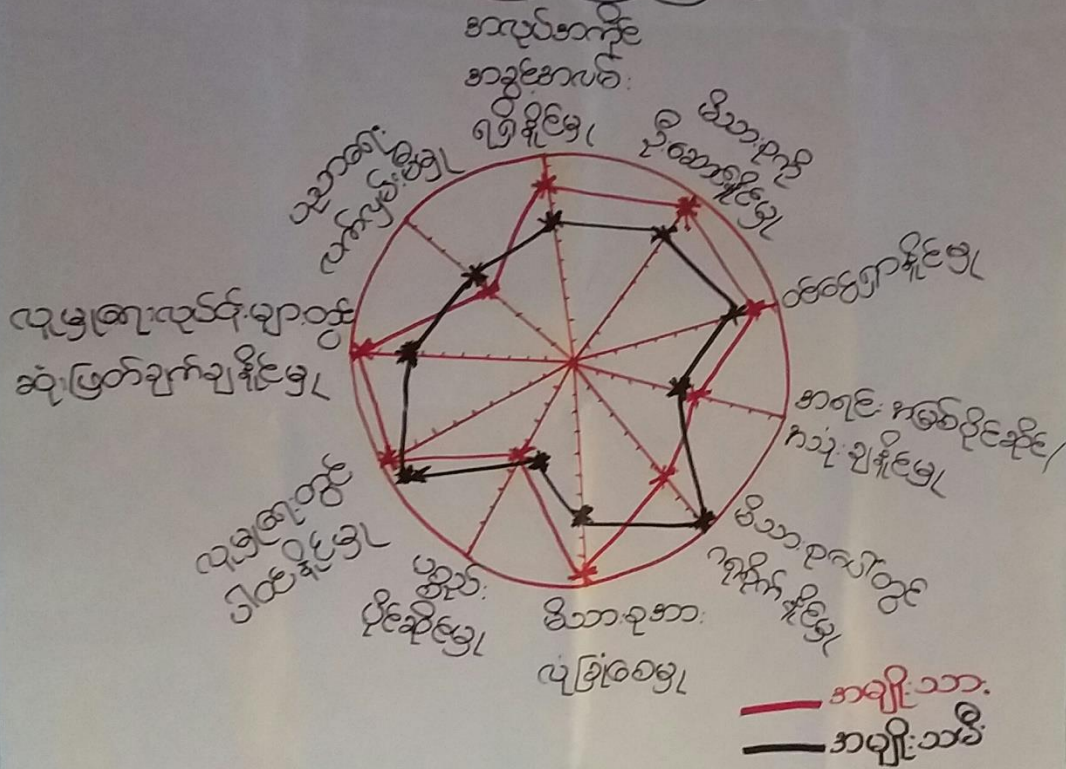 အလုပ်အကိုင်
အခွင့်အလမ်း
ရရှိနိုင်မှု
မိသားစုကို
ဦးဆောင်နိုင်မှု
ဝင်ငွေရှာနိုင်မှု
အရင်းအမြစ်ပိုင်ဆိုင်/
သုံးချနိုင်မှု
မိသားစုပေါ်တွင်
ဂရုစိုက်နိုင်မှု
မိသားစုအား
လုံခြုံစေမှု
ပစ္စည်း
ပိုင်ဆိုင်မှု
လူမှုရေးတွင်
ပါဝင်နိုင်မှု
လူမှုရေးလုပ်ငန်းများတွင်
ဆုံးဖြတ်ချက်ချနိုင်မှု
ပညာရေး
လက်လှမ်းမီမှု
အမျိုးသား
အမျိုးသမီး